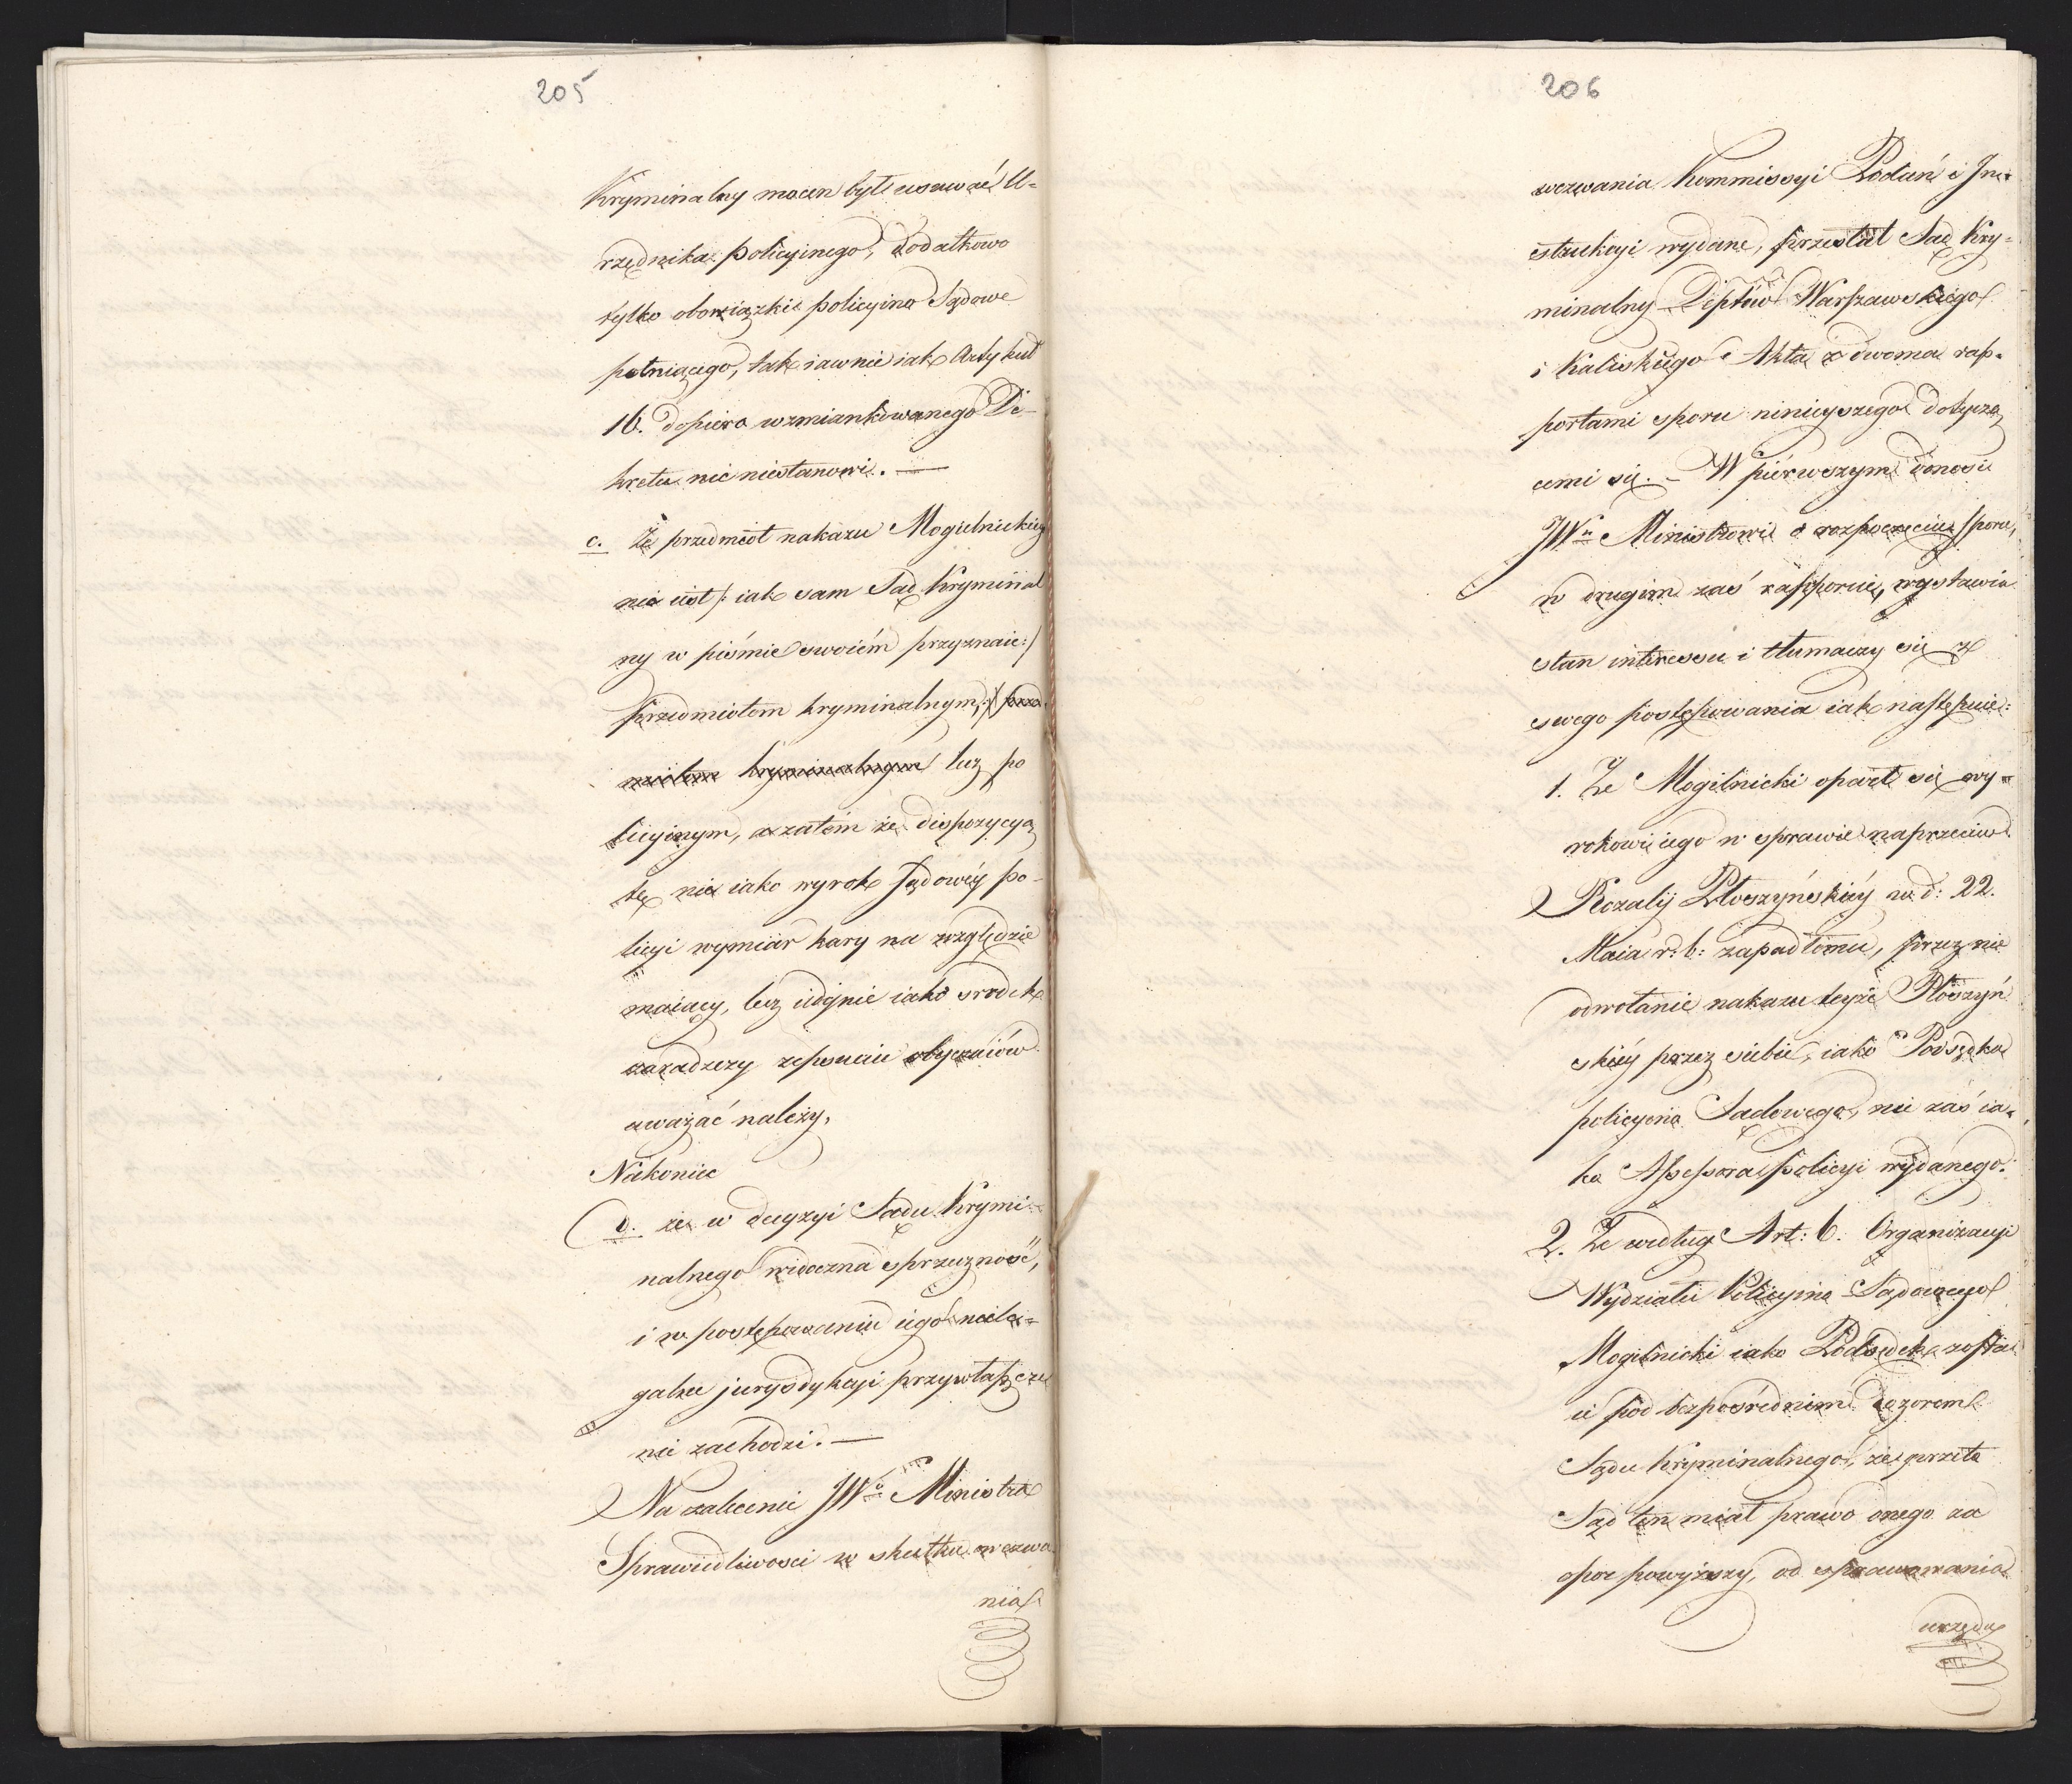 205
Kryminalny mocen był usuwać U-
rzędnika policyinego, dodatkowo
tylko obowiązki policyino Sądowe
pełniącego, tak iawnie iak Artykuł
16. dopiero wzmiankowanego De-
kretu nic niestanowi. —
c. Że przedmiot nakazu Mogielnickieg
nie iest /: iak sam Sąd Kryminal
ny w piśmie swoiém przyznaie :/
przedmiotem kryminalnym, przed
miotem kryminalnym lecz po
licyinym, a zatém że dispozycyą
tę nie iako wyrok Sądowéy po-
licyi wymiar kary na względzie
maiący, lecz iedynie iako srodek
zaradczy zepsuciu obyczaiów
uważać należy,
Nakoniec
d. że w decyzyi Sądu Krymi-
nalnego widoczna sprzeczność,
i w postępowaniu iego niele-
galne jurysdykcyi przywłaszcze
nie zachodzi. —
Na zalecenie JWo Ministra
Sprawiedliwosci w skutku wezwa
nia
206
wezwania Kommissyi Podań i In-
strukcyi wydane, przesłał Sąd Kry-
minalny Deptów Warszawskiego
i Kaliskiego Akta z dwoma rap-
portami sporu ninieyszego dotyczą
cemi się. - W pierwszym donosi
JWu Ministrowi o rozpoczęciu sporu,
w drugim zaś rapporcie, wystawia
stan interessu i tłumaczy się z
swego postępowania iak następuie:
1. Że Mogilnicki oparł się wy-
rokowi iego w sprawie naprzeciw
Rozalij Płoszyńskiéy w d: 22.
Maia r: b: zapadłemu, przez nie
odwołanie nakazu teyże Płoszyń
skiéy przez siebie, iako Podsędka
policyino Sądowego, nie zaś ia-
ko Assessora policyi wydanego.
2. Że według Art: 6. Organizacyi
Wydziału Policyino Sądowego
Mogilnicki iako Podsędek zosta
ie pod bezpośrednim dozorem
Sądu Kryminalnego, że przeto
Sąd ten miał prawo onego za
opor powyższy, od sprawowania
urzędu